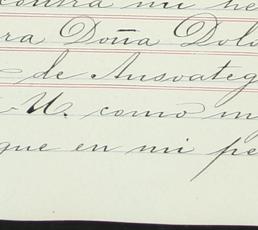 contra mi he
ra Doña Dolo
de Ansoateg
U. como m
que en mi pe